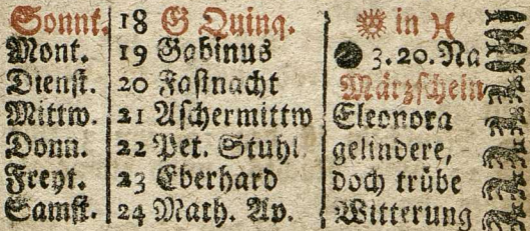 Sonnt. 18 G Quinq. ☀ in ♓
Mont. 19 Gabinus ● 3.20. Na
Dienst. 20 Fastnacht Märzschein
Mittw. 21 Aschermittw Eleonora
Donn. 22 Pet. Stuhl gelindere,
Freyt. 23 Eberhard doch trübe
Samst. 24 Math. Ap. Witterung